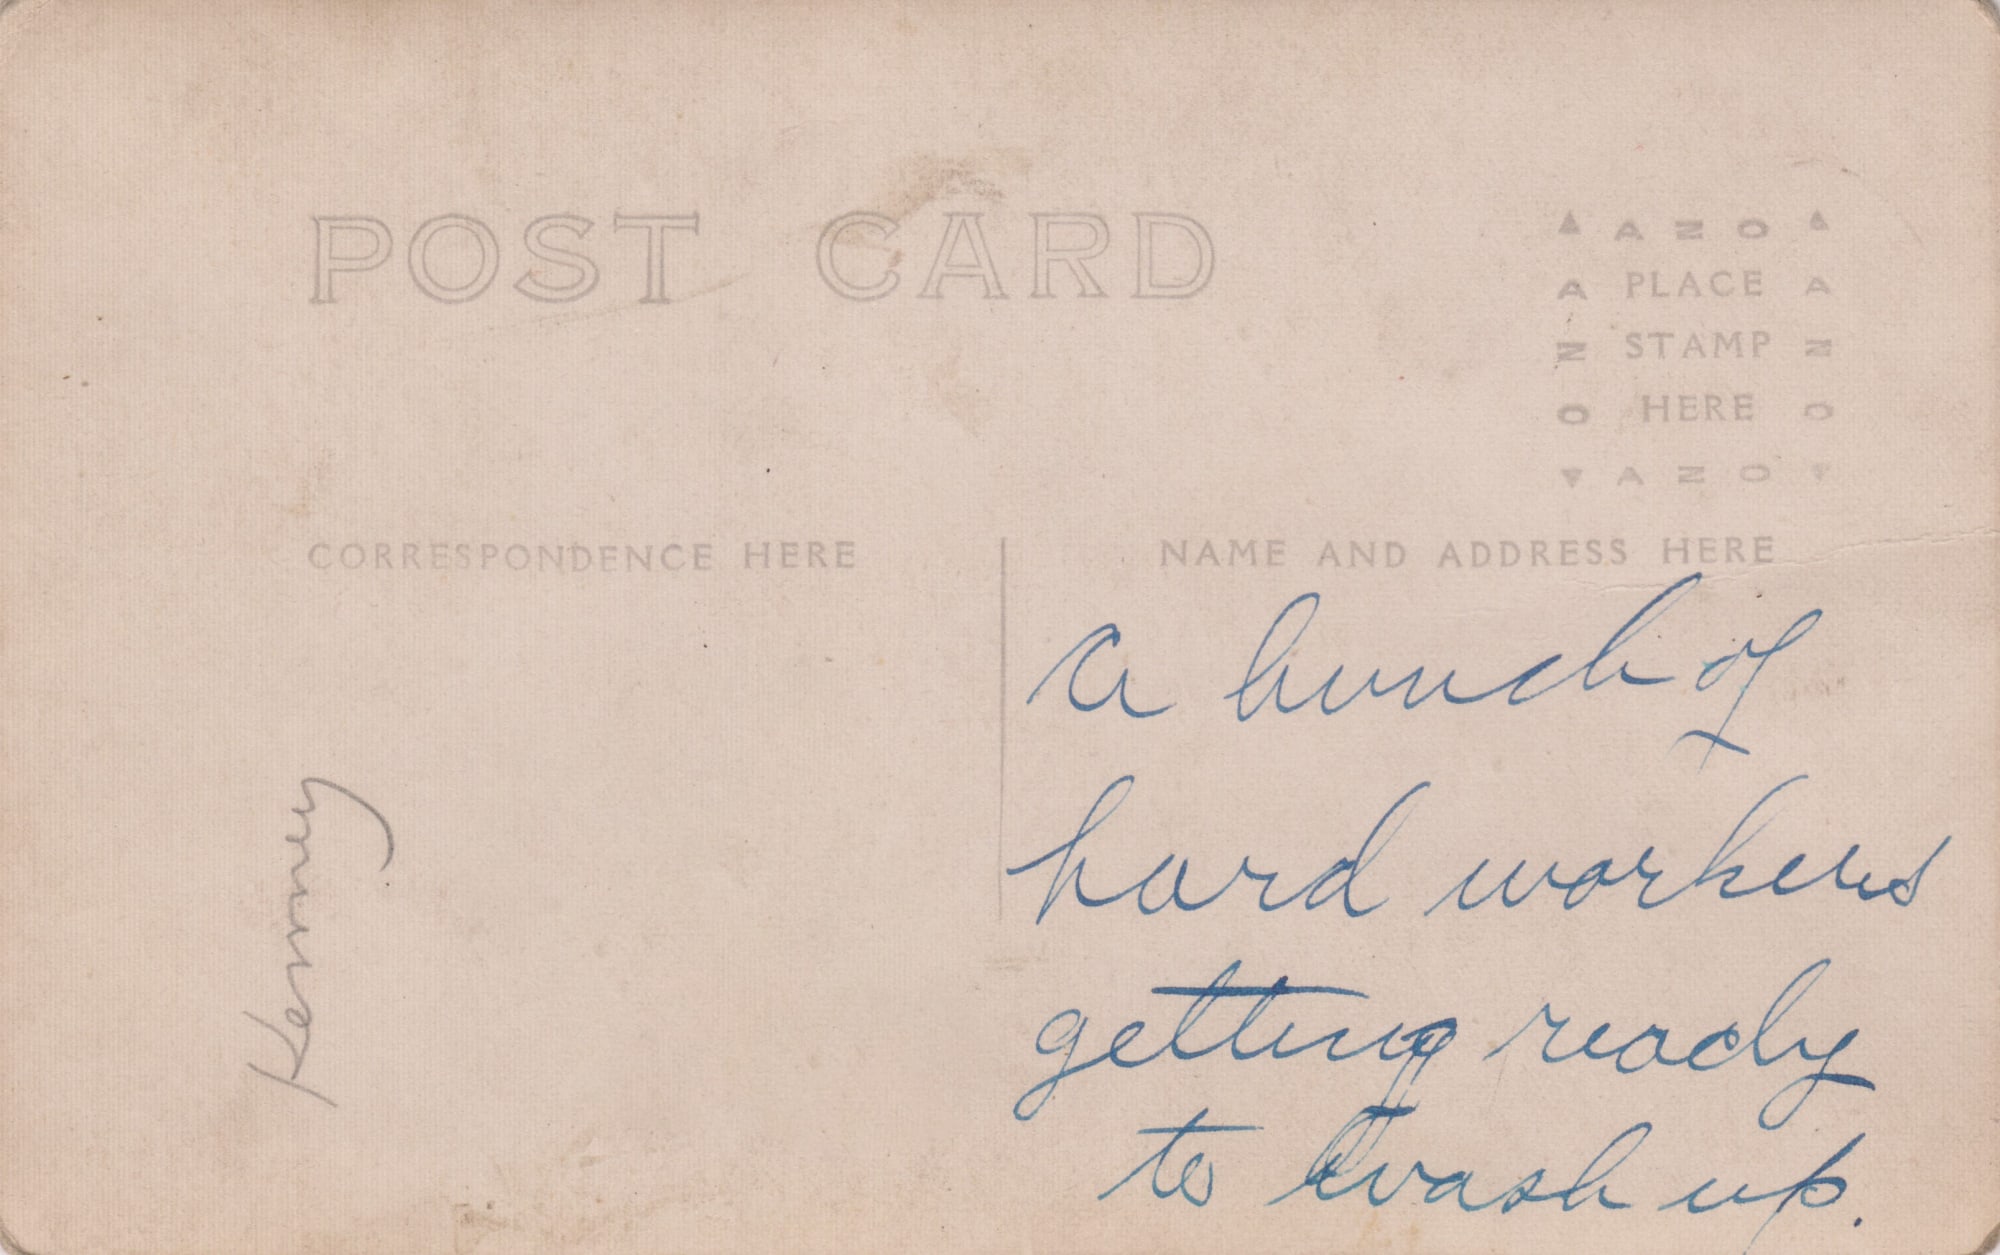 POST CARD
AZO
A PLACE A
N STAMP N
O HERE O
AZO
CORRESPONDENCE HERE
NAME AND ADDRESS HERE
a bunch of
hard workers
getting ready
to wash up.
Kenny